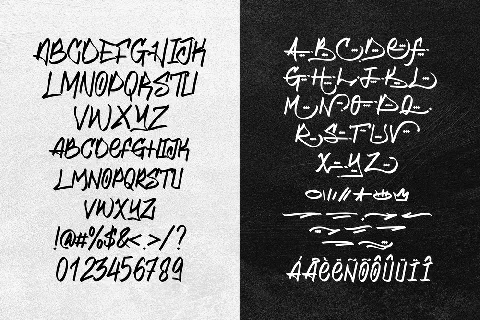 ABCDEFGHIJK
LMNOPQRSTU
VWXYZ
ABCDEFGHIJK
LMNOPQRSTU
VWXYZ
!@#%$&<.>/?
0123456789
A B C D E F
G H I J K L
M N O P Q
R S T U V
X Y Z
ÁÄÈËÑÕÔÛÜÏÎ